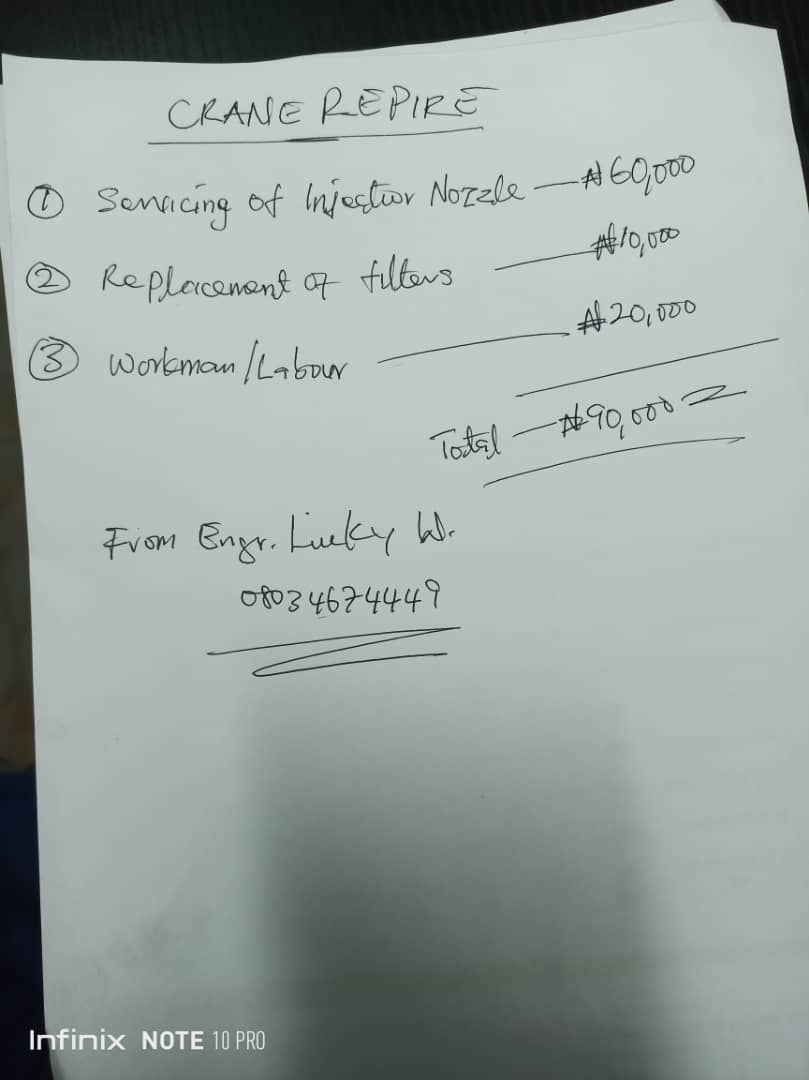 CRANE REPIRE
① Servicing of Injector Nozzle — ₦60,000
② Replacement of filters — ₦10,000
③ Workman/Labour — ₦20,000
Total — ₦90,000
From Engr. Lucky W.
08034674449
Infinix NOTE 10 PRO